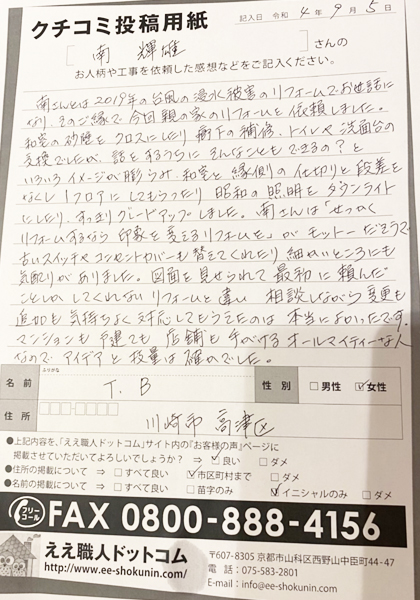 クチコミ投稿用紙
記入日 令和 4年 9月 5日
[ 南 輝雄 ] さんの
お人柄や工事を依頼した感想などをご記入ください。
南さんとは2019年の台風の浸水被害のリフォームでお世話に
なり、そのご縁で今回親の家のリフォームを依頼しました。
和室の砂壁をクロスにしたり 廊下の補修、トイレや洗面台の
交換でしたが、話をするうちに そんなこともできるの?と
いろいろイメージが膨らみ、和室と縁側の仕切りと段差を
なくし1フロアにしてもらったり 昭和の照明をダウンライト
にしたり、すっかりグレードアップしました。南さんは「せっかく
リフォームするなら 印象を変えるリフォームを」がモットーだそうで
古いスイッチやコンセントカバーも替えてくれたり 細かいところにも
気配りがありました。図面を見せられて 最初に頼んだ
ことしかしてくれないリフォームと違い 相談しながら変更も
追加も気持ちよく対応してもらえたのは 本当によかったです。
マンションも戸建ても 店舗も手がけるオールマイティーな人
なので アイデアと技量は確かでした。
ふりがな
名前 T.B 性別 □男性 ☑女性
住所 川崎市 高津区
●上記内容を、「ええ職人ドットコム」サイト内の『お客様の声』ページに
掲載させていただいてよろしいでしょうか? ⇒ ☑良い □ダメ
●住所の掲載について ⇒ □すべて良い ☑市区町村まで □ダメ
●名前の掲載について ⇒ □すべて良い □苗字のみ ☑イニシャルのみ □ダメ
フリーコール FAX 0800-888-4156
ええ職人ドットコム
http://www.ee-shokunin.com/
〒607-8305 京都市山科区西野山中臣町44-47
電話:075-583-2801
E-mail:info@ee-shokunin.com